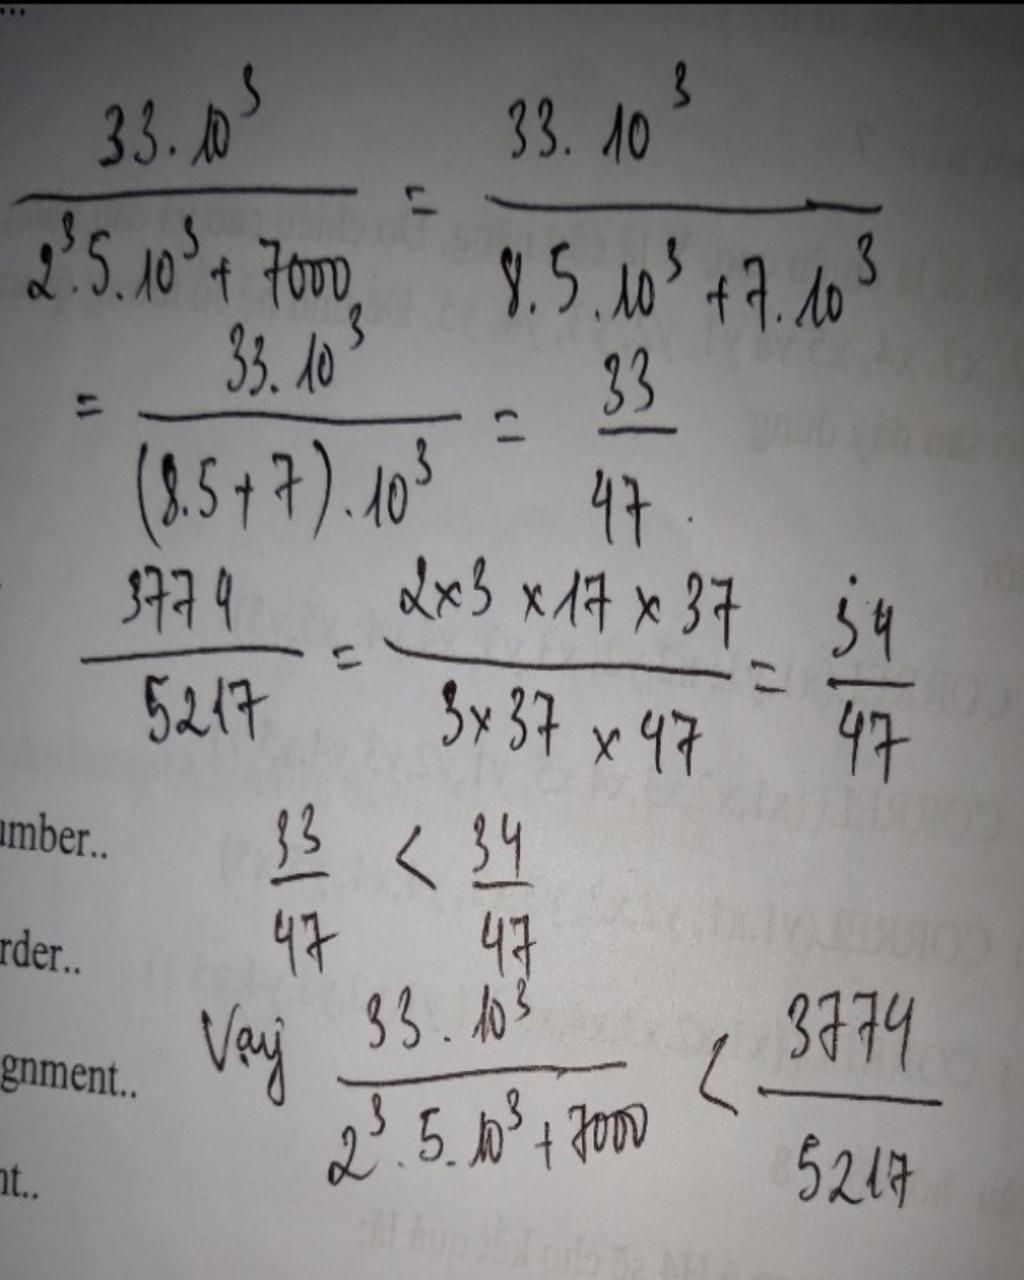 ...
33. 10³ / 2³5. 10³ + 7000 = 33. 10³ / 8. 5. 10³ + 7. 10³
= 33. 10³ / (8. 5 + 7) . 10³ = 33 / 47 .
3774 / 5217 = 2 x 3 x 17 x 37 / 3 x 37 x 47 = 34 / 47
umber.. 33 / 47 < 34 / 47
rder..
Vậy 33. 10³ / 2³ . 5. 10³ + 7000 < 3774 / 5217
gnment..
nt..